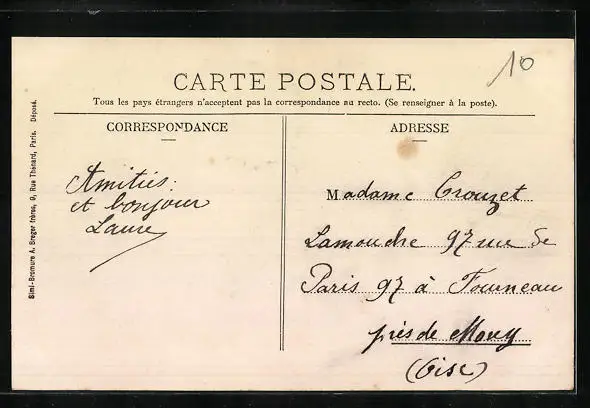 10
CARTE POSTALE.
Tous les pays étrangers n'acceptent pas la correspondance au recto. (Se renseigner à la poste).
CORRESPONDANCE
Amitiés
et bonjour
Laure
ADRESSE
Madame Crouzet
Lamouche 97 rue de
Paris 97 à Fourneau
près de Mouy
(Oise)
Simi-Bromure A. Breger frères, 9, Rue Thénard, Paris. Déposé.